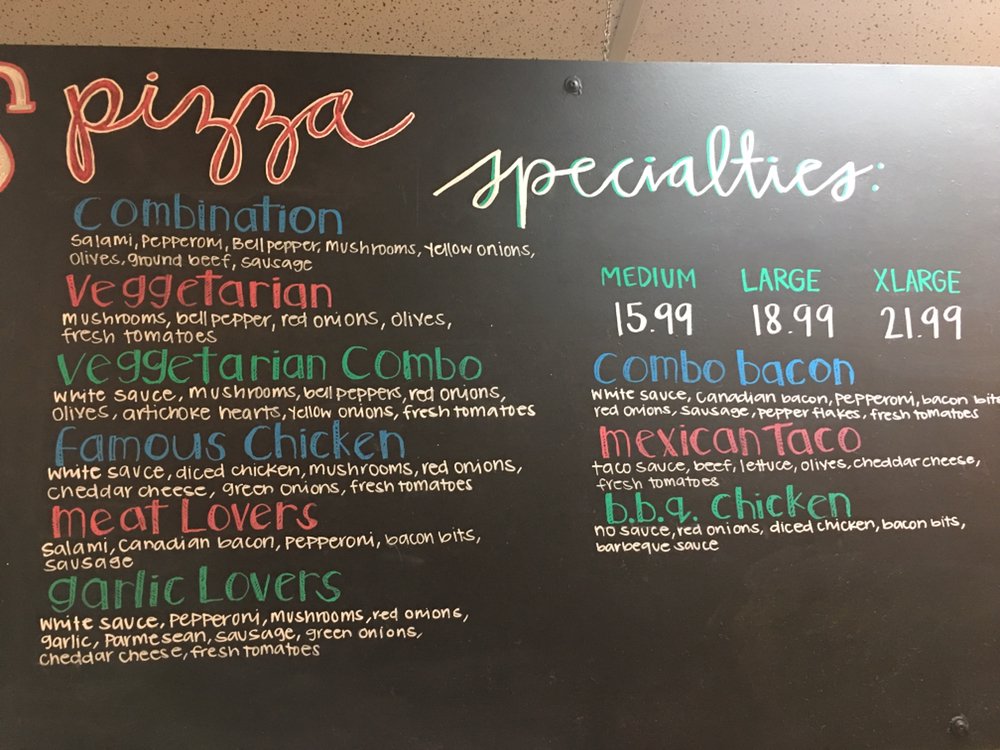 pizza
specialties:
Combination
Salami, Pepperoni, Bell pepper, mushrooms, yellow onions,
olives, ground beef, sausage
Veggetarian
mushrooms, bell pepper, red onions, olives,
fresh tomatoes
Veggetarian Combo
white sauce, mushrooms, bell peppers, red onions,
olives, artichoke hearts, yellow onions, fresh tomatoes
Famous Chicken
white sauce, diced chicken, mushrooms, red onions,
cheddar cheese, green onions, fresh tomatoes
meat Lovers
Salami, Canadian bacon, pepperoni, bacon bits,
sausage
garlic Lovers
white sauce, pepperoni, mushrooms, red onions,
garlic, Parmesean, sausage, green onions,
cheddar cheese, fresh tomatoes
MEDIUM LARGE XLARGE
15.99 18.99 21.99
Combo bacon
white sauce, Canadian bacon, pepperoni, bacon bits
red onions, sausage, pepper flakes, fresh tomatoes
mexican Taco
taco sauce, beef, lettuce, olives, cheddar cheese,
fresh tomatoes
b.b.q. Chicken
no sauce, red onions, diced chicken, bacon bits,
barbeque sauce